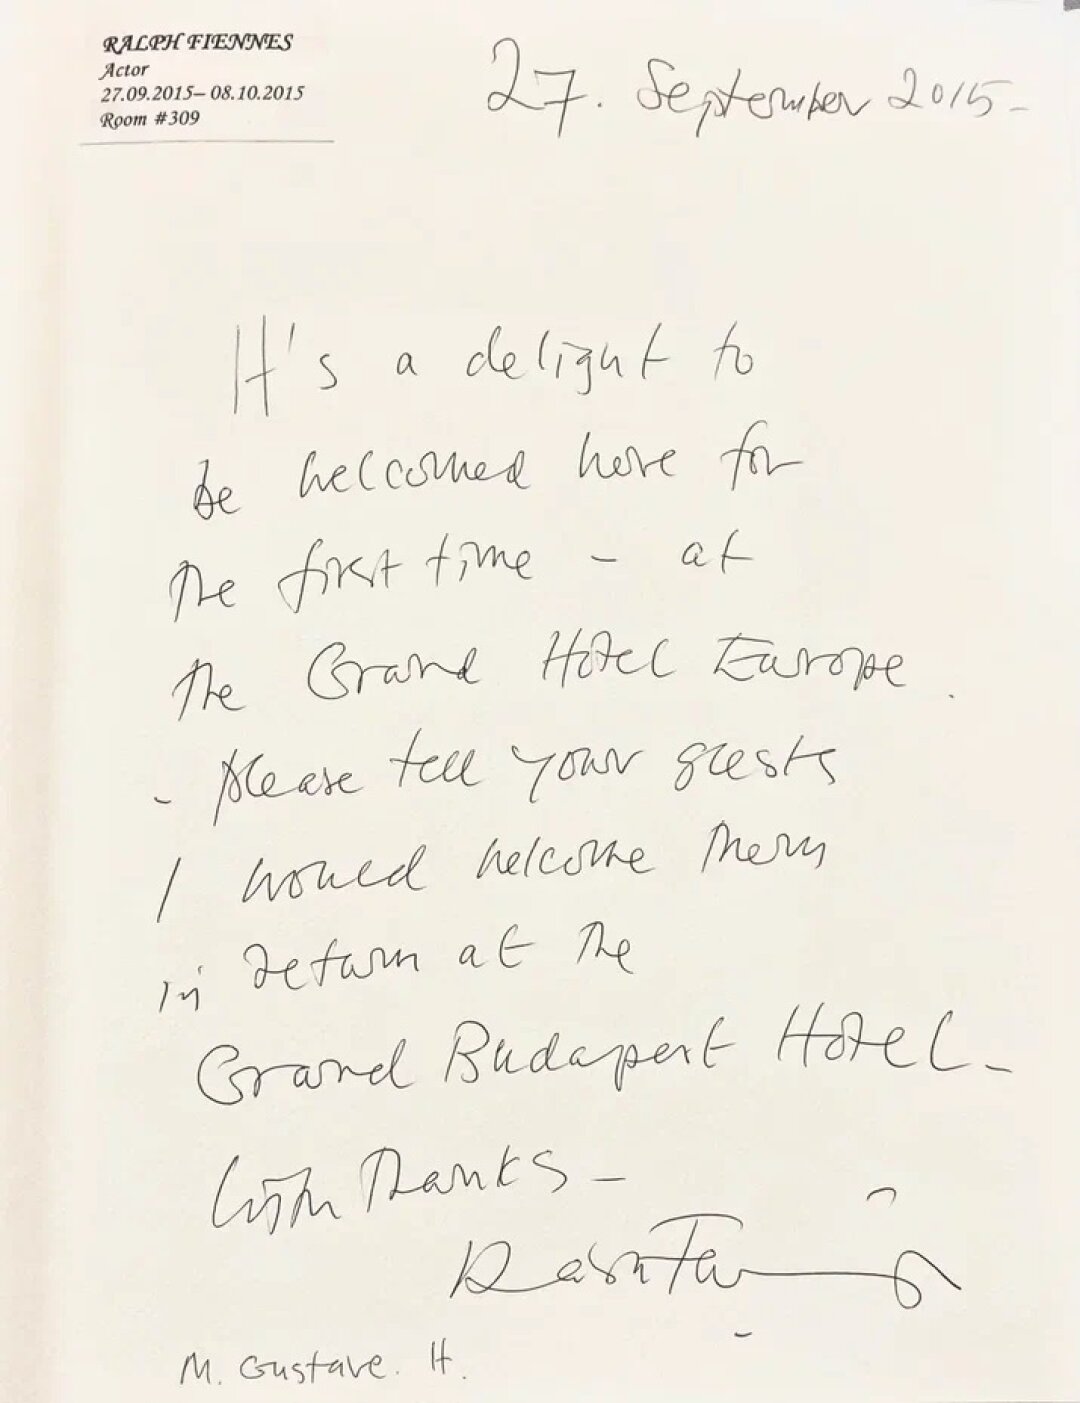 RALPH FIENNES
Actor
27.09.2015– 08.10.2015
Room #309
27. September 2015 -
It's a delight to
be welcomed here for
the first time – at
the Grand Hotel Europe.
- please tell your guests
I would welcome them
in return at the
Grand Budapest Hotel -
With thanks –
Ralph Fiennes
M. Gustave. H.